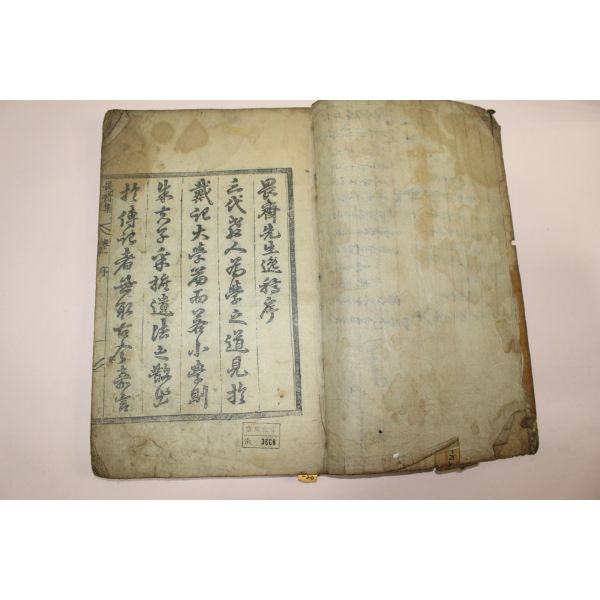 畏齋先生逸稿序
三代聖人爲學之道見於
戴記大學篇而若小學則
朱夫子采摭遺法之散出
於傳記者無取古今嘉言
畏齋集
序
3668